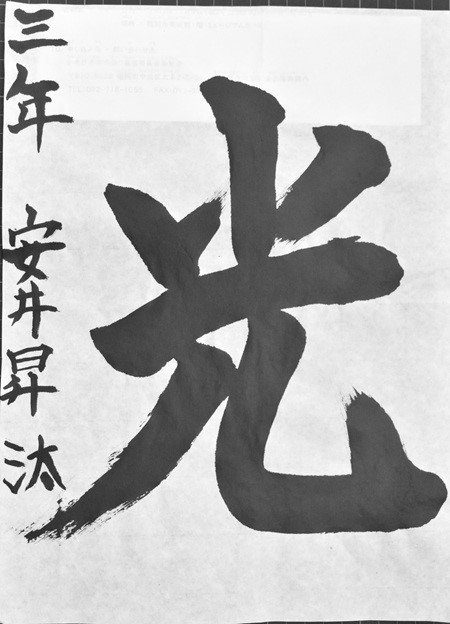 光
三年 安井昇汰